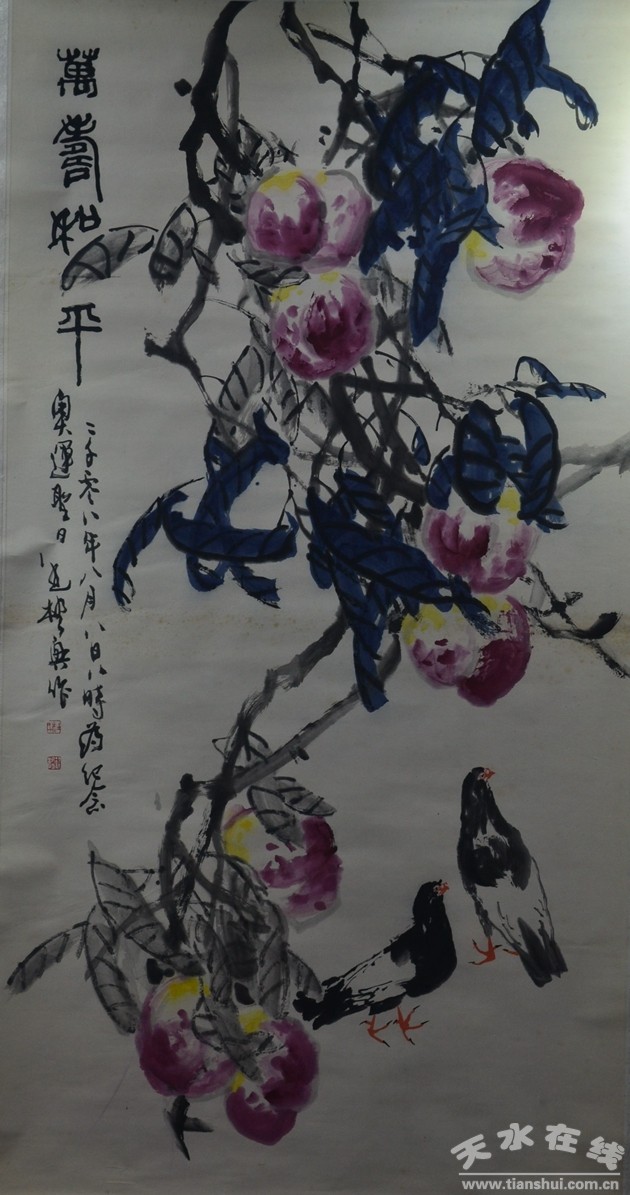 萬壽和平
二千零八年八月八日八時為紀念
奧運聖日
作
天水在线
www.tianshui.com.cn